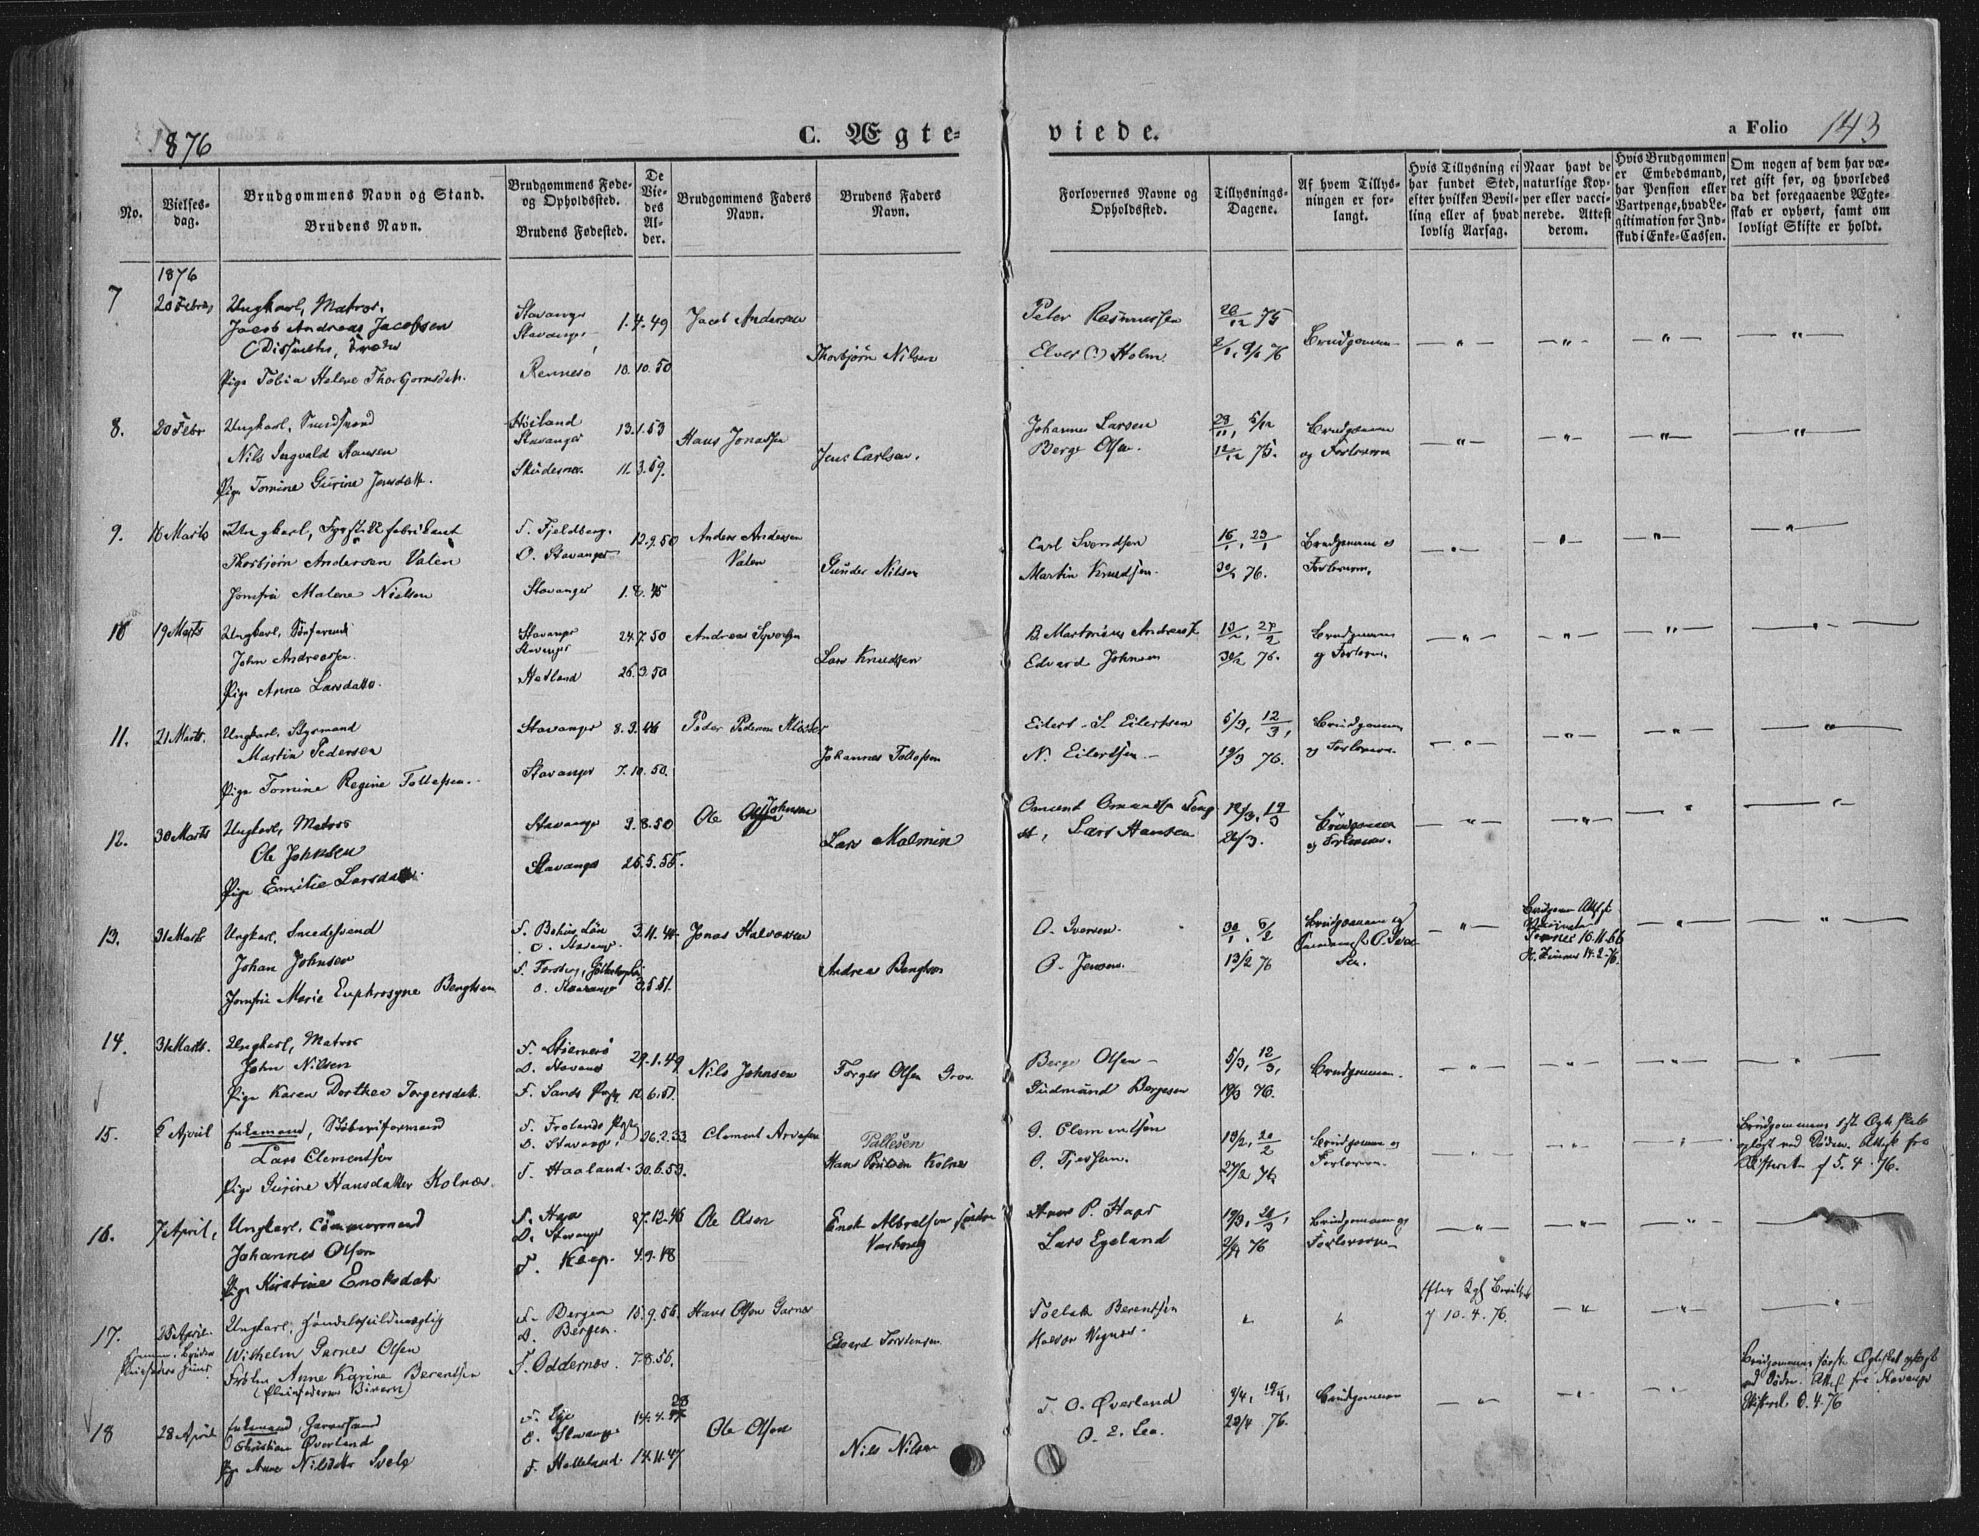 1876
C. Ægte-
viede.
a Folio 143
No.
Vielses-
dag.
Brudgommens Navn og Stand.
Brudens Navn.
Brudgommens Føde-
og Opholdssted.
Brudens Fødested.
De
Vie-
des
Al-
der.
Brudgommens Faders
Navn.
Brudens Faders
Navn.
Forlovernes Navne og
Opholdssted.
Tillysnings-
Dagene.
Af hvem Tillys-
ningen er for-
langt.
Hvis Tillysning ei
har fundet Sted,
efter hvilken Bevil-
ling eller af hvad
lovlig Aarsag.
Naar havt de
naturlige Kop-
per eller vacci-
nerede. Attest
derom.
Hvis Brudgommen
er Embedsmand,
har Pension eller
Vartpenge, hvad Le-
gitimation for Ind-
skud i Enke-Cassen.
Om nogen af dem har væ-
ret gift før, og hvorledes
da det foregaaende Ægte-
skab er ophørt, samt om
lovligt Skifte er holdt.
1876
7
20 Febr
Ungkarl, Matros,
Jacob Andreas Jacobsen
Pige Tobia Helene Thorbjørnsdat.
Stavanger
Stavanger
Rennesø
1.4.49
10.10.50
Jacob Andersen
Thorbjørn Nilsen
Peter Rasmussen
Elver (?) Holm
26/12 75
2/1, 9/1 76
Brudgommen
8.
20 Febr
Ungkarl,
Nils Ingvald Hansen
Pige Tomine Gurine Jensdatt.
Høiland
Stavanger
Skudesnes
13.1.53
11.3.59.
Hans Jonassen
Jens Carlsen.
Johannes Larsen
Berge Olsen
28/11, 5/12
12/12 75.
Brudgommen
og Forlovern
9.
16 Marts
Ungkarl, Fyrstikfabrikant
Thorbjørn Andersen Valen
Jomfru Malene Nielsen
F. Fjeldberg.
O. Stavanger
Stavanger
12.9.50
1.8.45
Anders Andersen
Valen
Gunder Nilsen
Carl Svendsen
Martin Knudsen.
16/1, 23/1
30/1 76.
Brudgommen og
Forlovern.
10
19 Marts
Ungkarl, Søfarende
John Andreassen.
Pige Anne Larsdatter.
Stavanger
Stavanger
Hetland
24.7.50
26.3.50
Andreas Syvertsen
Lars Knudsen
B. Martinius Andreas
Edvard Johnsen
13/2, 27/2
30/2 76.
Brudgommen
og Forlovern.
11.
21 Marts.
Ungkarl, Styrmand
Martin Pedersen
Pige Tomine Regine Tollefsen.
Stavanger
Stavanger
8.3.46
7.10.50.
Peder Pedersen Kloster
Johannes Tollefsen
Eilert S. Eilertsen
N. Eilertsen
5/3, 12/3,
19/3 76.
Brudgommen
og Forlovern.
12.
30 Marts
Ungkarl, Matros
Ole Johnsen
Pige Emilie Larsdatt.
Stavanger
Stavanger
3.8.50
25.5.55.
Ole Johnsen
Lars Malmin
Lars Hansen
12/3, 19/3
26/3.
Brudgommen
og Forlovern.
13.
31 Marts
Ungkarl, Smedesvend
Johan Johnsen
Jomfru Marie Euphrosyne Bengtsen
O. Stavanger
O. Stavanger
3.11.44
3.5.51.
Jonas Halvorsen
Andreas Bengtson
O. Iversen.
O. Jensen.
30/1, 6/2
13/2 76
Brudgommen og
14.
31 Marts.
Ungkarl, Matros
John Nilsen
Pige Karen Dorthea Torgersdat.
F. Stjernerø
O. Stavanger
F. Sands Prstg
29.1.49
12.6.51.
Nils Johnsen
Torger Olsen Groe
Berge Olsen
Gudmund Bergesen
5/3, 12/3,
19/3 76.
Brudgommen.
15.
6 April
Enkemand,
Lars Clementsen
Pige Gurine Hansdatter Kolnes.
F. Frolands Prstg
O. Stavanger
F. Haaland
26.2.33
30.6.53.
Clement Arvesen
Pallesen
Hans Poulsen Kolnes
G. Clementsen
O. Tjessem.
13/2, 20/2
27/2 76.
Brudgommen og
Forlovern.
Brudgommens 1st Ægteskab
opløst ved Døden. Attest fra
Skifteret af 5.4.76.
16.
7 April,
Ungkarl, Tømmermand
Johannes Olsen
Pige Kirstine Enoksdat
F. Haa
O. Stavanger
F. Klep.
27.12.46
4.9.48
Ole Olsen
Enok Albretsen Søndre
Varhoug
Lars Egeland
19/3, 26/3,
2/4 76
Brudgommen og
Forlovern
17.
25 April.
Ungkarl, Handelsfuldmægtig
Wilhelm Garnes Olsen
Frøken Anne Karine Berentsen
F. Bergen
O. Bergen.
F. Oddernes.
15.9.56.
7.8.56.
Hans Olsen Garnes
Edvard Torstensen
Tollak Berentsen
Halvor Vignes.
Efter Kgl Bevilling
af 10.4.76.
18
28 April
Enkemand
Christian Øverland
Pige Anne Nilsdatter Svela
O. Stavanger
F. Helleland.
14.4.
14.11.47
Ole Olsen
Nils Nilsen
T. O. Øverland
O. E. Lea.
9/4, 16/4,
23/4 76.
Brudgommen
Brudgommens første Ægteskab opløst
ved Døden. Attest fra Stavanger
Skifteret 6.4.76